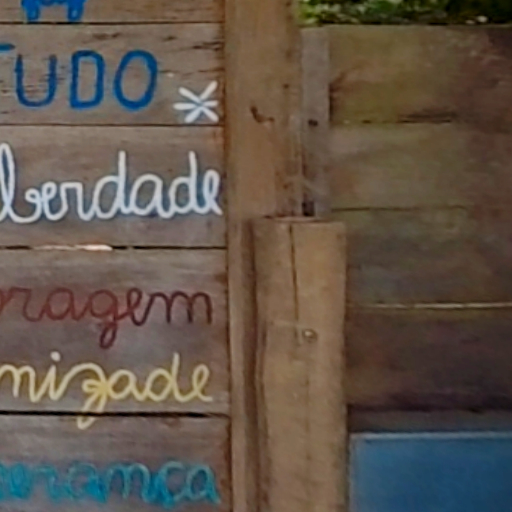 TUDO
berdade
ragem
mizade
erança